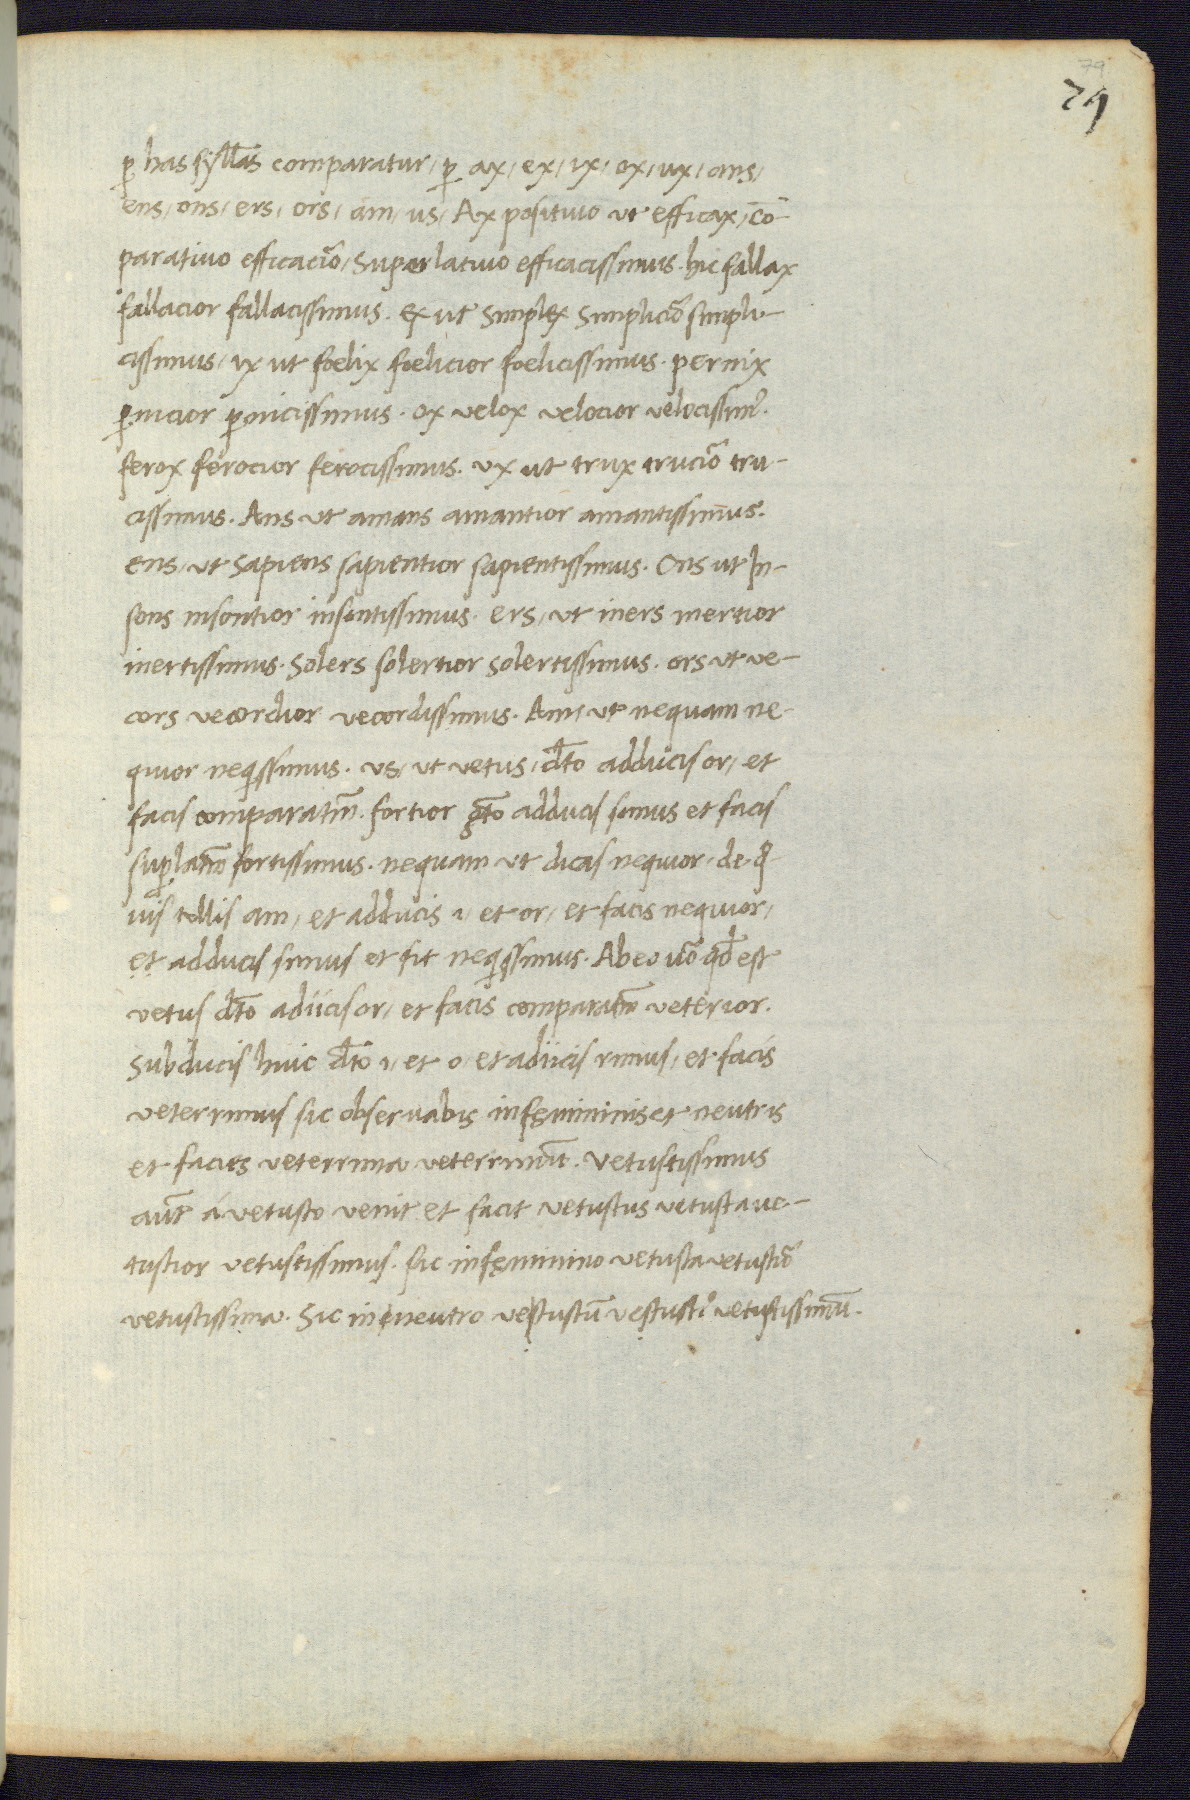 79
79
ꝑ has syll̄as comparatur, ꝑ ax, ex, ix, ox, ux, ans,
ens, ons, ers, ors, am, us, Ax positivo ut efficax, cō-
parativo efficaciō, Superlativo efficacissimus. hic fallax
fallacior fallacissimus. ex ut Simplex Simpliciō simpli-
cissimus, ix ut foelix foelicior foelicissimus. pernix
ꝑnicior ꝑnicissimus. ox velox velocior velocissim⁹.
ferox ferocior ferocissimus. ux ut trux truciō tru-
cissimus. Ans ut amans amantior amantissimus.
ens, ut sapiens sapientior sapientissimus. Ons ut In-
sons insontior insontissimus. ers, ut iners inertior
inertissimus. Solers solertior solertissimus. ors ut ve-
cors vecordior vecordissimus. Am, ut nequam ne-
quior neqissimus. us, ut vetus, dt̄o adducis or, et
facis comparatm̄. fortior dt̄o adducis simus et facis
suꝑlatm̄ fortissimus. nequam ut dicas nequior. de q̄-
vis tollis am, et adducis i, et or, et facis nequior,
et adducis simus et fit neqissimus. Ab eo uō qđ est
vetus dt̄o adiicis or, et facis comparatm̄ veterior.
Subducis huic dt̄o i, et o, et adiicis rimus, et facis
veterrimus sic observabis in fęmininis et neutris
et facies veterrima veterrimū. Vetustissimus
aut̄ á vetusto venit et facit vetustus vetusta ve-
tustior vetustissimus. Sic in fęminino vetusta vetustiō
vetustissima. Sic in neutro vestustū vestusti⁹ vetustissimū.